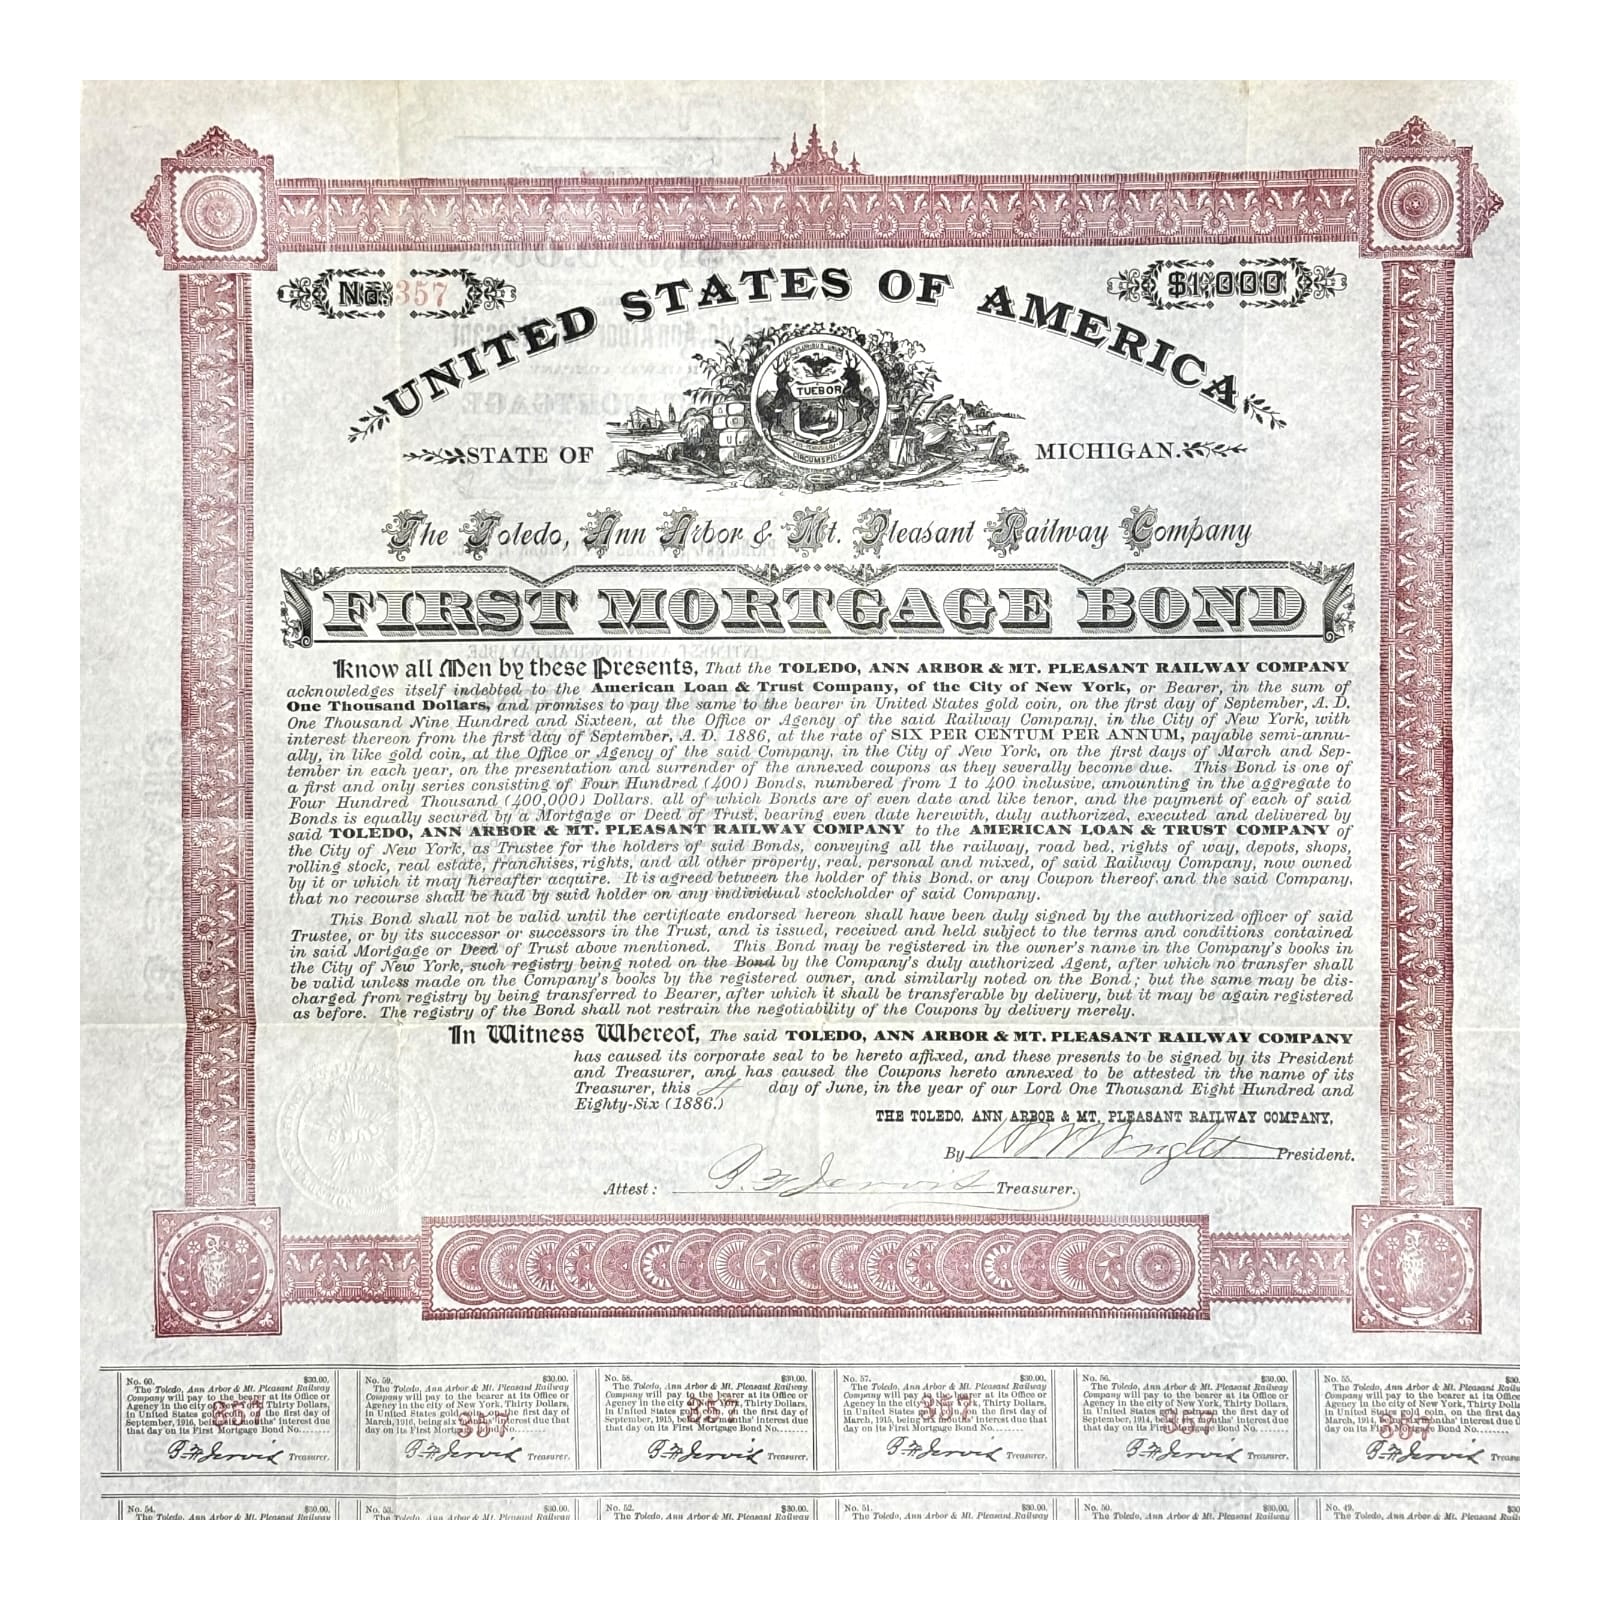 No. 357
$1,000
UNITED STATES OF AMERICA
E PLURIBUS UNUM
TUEBOR
CIRCUMSPICE
STATE OF MICHIGAN.
The Toledo, Ann Arbor & Mt. Pleasant Railway Company
FIRST MORTGAGE BOND
Know all Men by these Presents, That the TOLEDO, ANN ARBOR & MT. PLEASANT RAILWAY COMPANY
acknowledges itself indebted to the American Loan & Trust Company, of the City of New York, or Bearer, in the sum of
One Thousand Dollars, and promises to pay the same to the bearer in United States gold coin, on the first day of September, A. D.
One Thousand Nine Hundred and Sixteen, at the Office or Agency of the said Railway Company, in the City of New York, with
interest thereon from the first day of September, A. D. 1886, at the rate of SIX PER CENTUM PER ANNUM, payable semi-annu-
ally, in like gold coin, at the Office or Agency of the said Company, in the City of New York, on the first days of March and Sep-
tember in each year, on the presentation and surrender of the annexed coupons as they severally become due. This Bond is one of
a first and only series consisting of Four Hundred (400) Bonds, numbered from 1 to 400 inclusive, amounting in the aggregate to
Four Hundred Thousand (400,000) Dollars, all of which Bonds are of even date and like tenor, and the payment of each of said
Bonds is equally secured by a Mortgage or Deed of Trust, bearing even date herewith, duly authorized, executed and delivered by
said TOLEDO, ANN ARBOR & MT. PLEASANT RAILWAY COMPANY to the AMERICAN LOAN & TRUST COMPANY of
the City of New York, as Trustee for the holders of said Bonds, conveying all the railway, road bed, rights of way, depots, shops,
rolling stock, real estate, franchises, rights, and all other property, real, personal and mixed, of said Railway Company, now owned
by it or which it may hereafter acquire. It is agreed between the holder of this Bond, or any Coupon thereof, and the said Company,
that no recourse shall be had by said holder on any individual stockholder of said Company.
This Bond shall not be valid until the certificate endorsed hereon shall have been duly signed by the authorized officer of said
Trustee, or by its successor or successors in the Trust, and is issued, received and held subject to the terms and conditions contained
in said Mortgage or Deed of Trust above mentioned. This Bond may be registered in the owner's name in the Company's books in
the City of New York, such registry being noted on the Bond by the Company's duly authorized Agent, after which no transfer shall
be valid unless made on the Company's books by the registered owner, and similarly noted on the Bond; but the same may be dis-
charged from registry by being transferred to Bearer, after which it shall be transferable by delivery, but it may be again registered
as before. The registry of the Bond shall not restrain the negotiability of the Coupons by delivery merely.
In Witness Whereof, The said TOLEDO, ANN ARBOR & MT. PLEASANT RAILWAY COMPANY
has caused its corporate seal to be hereto affixed, and these presents to be signed by its President
and Treasurer, and has caused the Coupons hereto annexed to be attested in the name of its
Treasurer, this 4 day of June, in the year of our Lord One Thousand Eight Hundred and
Eighty-Six (1886.)
THE TOLEDO, ANN ARBOR & MT. PLEASANT RAILWAY COMPANY,
By Wright President.
Attest: B. F. Jervis Treasurer.
No. 60. $30.00.
The Toledo, Ann Arbor & Mt. Pleasant Railway
Company will pay to the bearer at its Office or
Agency in the city of New York, Thirty Dollars,
in United States gold coin, on the first day of
September, 1916, being six months' interest due
that day on its First Mortgage Bond No.
357
B. F. Jervis Treasurer.
No. 59. $30.00.
The Toledo, Ann Arbor & Mt. Pleasant Railway
Company will pay to the bearer at its Office or
Agency in the city of New York, Thirty Dollars,
in United States gold coin, on the first day of
March, 1916, being six months' interest due
that day on its First Mortgage Bond No.
357
B. F. Jervis Treasurer.
No. 58. $30.00.
The Toledo, Ann Arbor & Mt. Pleasant Railway
Company will pay to the bearer at its Office or
Agency in the city of New York, Thirty Dollars,
in United States gold coin, on the first day of
September, 1915, being six months' interest due
that day on its First Mortgage Bond No.
357
B. F. Jervis Treasurer.
No. 57. $30.00.
The Toledo, Ann Arbor & Mt. Pleasant Railway
Company will pay to the bearer at its Office or
Agency in the city of New York, Thirty Dollars,
in United States gold coin, on the first day of
March, 1915, being six months' interest due that
day on its First Mortgage Bond No.
357
B. F. Jervis Treasurer.
No. 56. $30.00.
The Toledo, Ann Arbor & Mt. Pleasant Railway
Company will pay to the bearer at its Office or
Agency in the city of New York, Thirty Dollars,
in United States gold coin, on the first day of
September, 1914, being six months' interest due
that day on its First Mortgage Bond No.
357
B. F. Jervis Treasurer.
No. 55. $30
The Toledo, Ann Arbor & Mt. Pleasant
Company will pay to the bearer at its Office or
Agency in the city of New York, Thirty
in United States gold coin, on the first day
March, 1914, being six months' interest due
that day on its First Mortgage Bond No.
357
B. F. Jervis
No. 54. $30.00.
The Toledo, Ann Arbor & Mt. Pleasant Railway
No. 53. $30.00.
The Toledo, Ann Arbor & Mt. Pleasant Railway
No. 52. $30.00.
The Toledo, Ann Arbor & Mt. Pleasant Railway
No. 51. $30.00.
The Toledo, Ann Arbor & Mt. Pleasant Railway
No. 50. $30.00.
The Toledo, Ann Arbor & Mt. Pleasant Railway
No. 49. $30
The Toledo, Ann Arbor & Mt. Pleasant